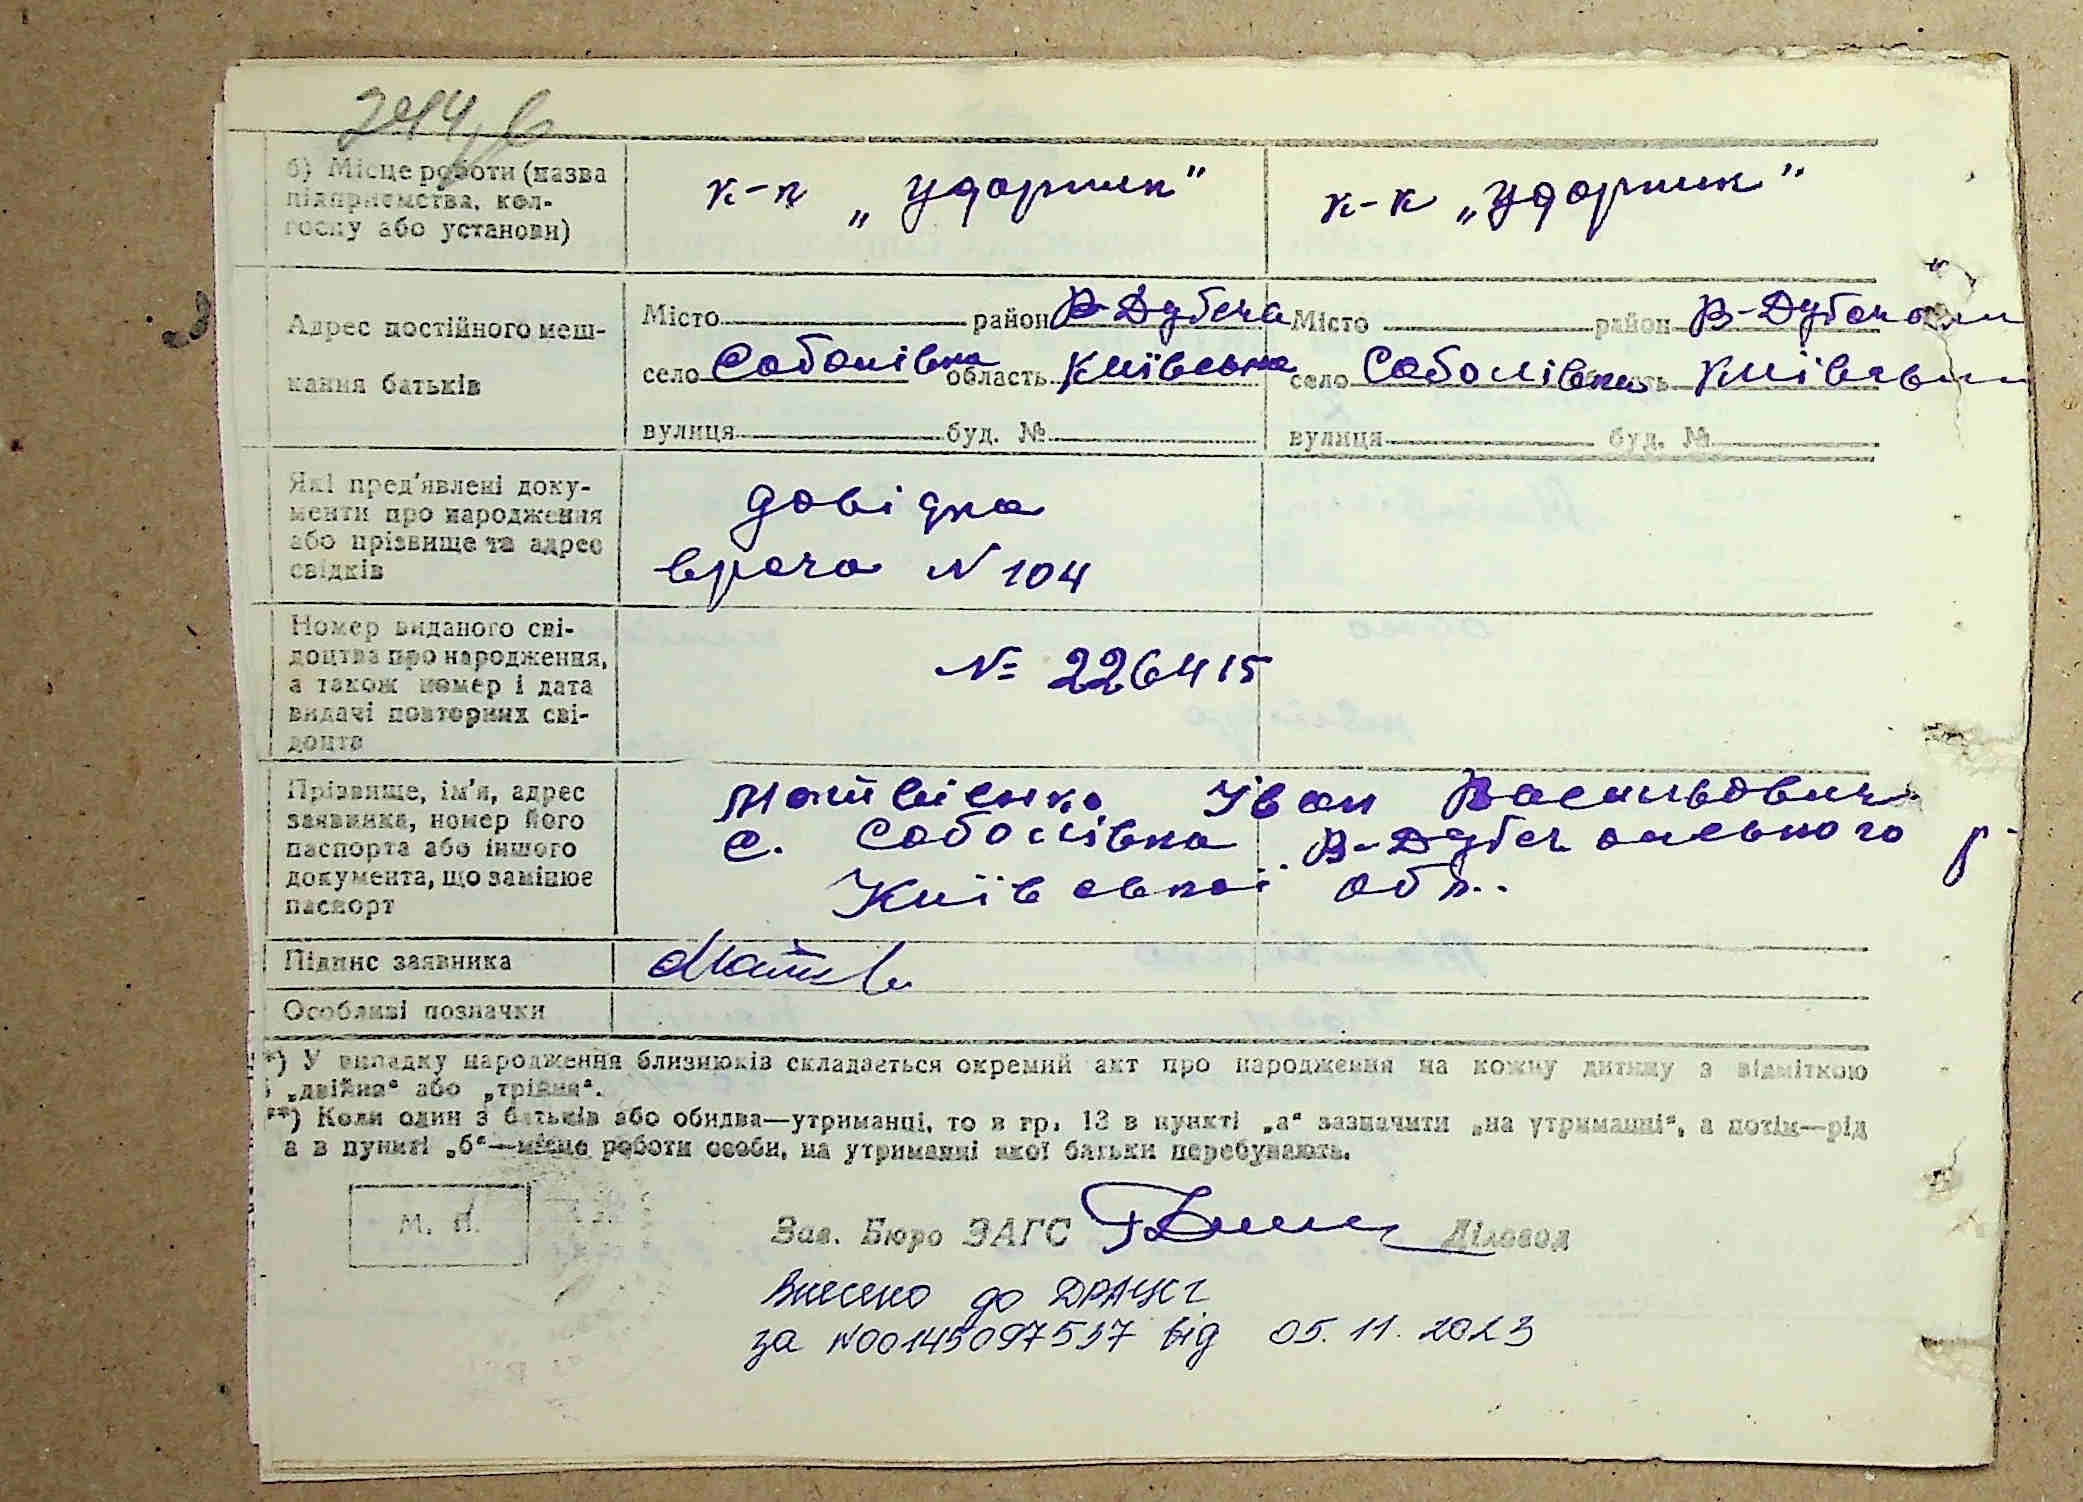 б) Місце роботи (назва підприємства, колгоспу або установи)
к-п „Ударник" к-к „Ударник"
Адрес постійного мешкання батьків
Місто район В-Дубеча Місто район В-Дубечан
село Соболівка область Київська село Соболівка Київська
вулиця буд. № вулиця буд. №
Які пред'явлені документи про народження або прізвище та адрес свідків
довідка
врача N 104
Номер виданого свідоцтва про народження, а також номер і дата видачі повторних свідоцтв
№ 226415
Прізвище, ім'я, адрес заявника, номер його паспорта або іншого документа, що замінює паспорт
Матвієнко Іван Васильович
с. Соболівка В-Дубечанського р-
Київської обл.
Підпис заявника Матв
Особливі позначки
*) У випадку народження близнюків складається окремий акт про народження на кожну дитину з відміткою
„двійня" або „трійня".
**) Коли один з батьків або обидва—утриманці, то в гр. 13 в пункті „а" зазначити „на утриманні", а потім—рід
а в пункті „б"—місце роботи особи, на утриманні якої батьки перебувають.
М. П.
Зав. Бюро ЗАГС Діловод
Внесено до ДРАЦСГ
за №00145097537 від 05.11.2023